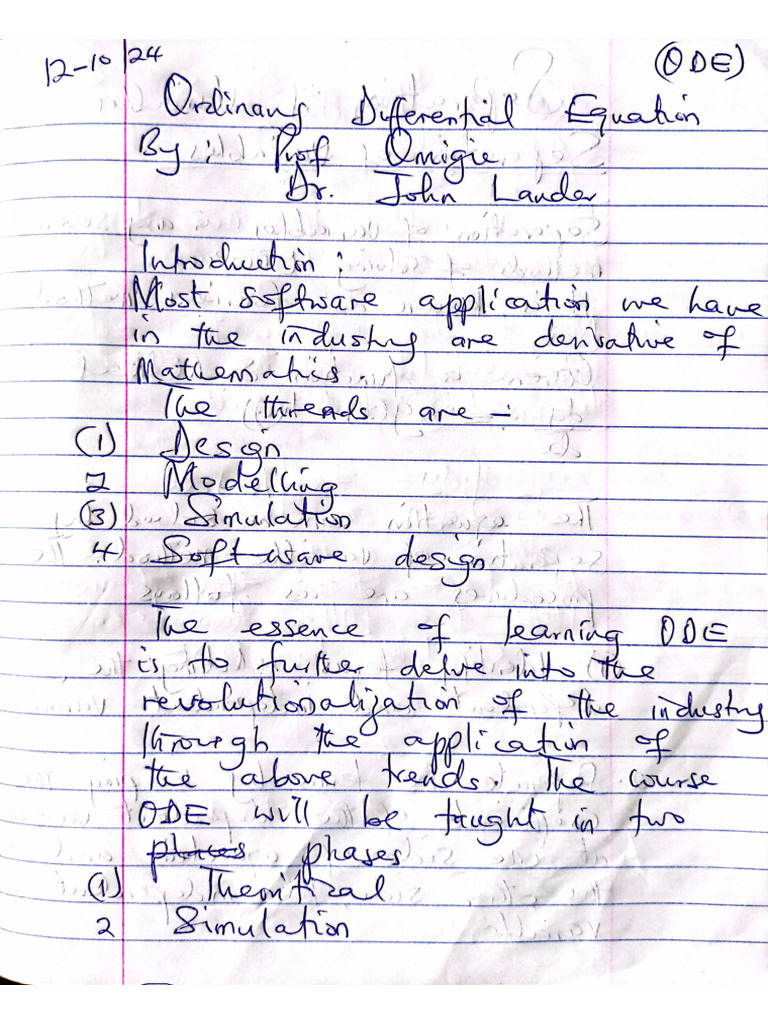 12-10/24
(ODE)
Ordinary Differential Equation
By: Prof Omigie
Dr. John Lander
Introduction:
Most software application we have
in the industry are derivative of
Mathematics.
The threads are -
(1) Design
2 Modelling
(3) Simulation
4 Software design
The essence of learning ODE
is to further delve into the
revolutionalization of the industry
through the application of
the above trends. The course
ODE will be taught in two
phases
(1) Theoritical
2 Simulation